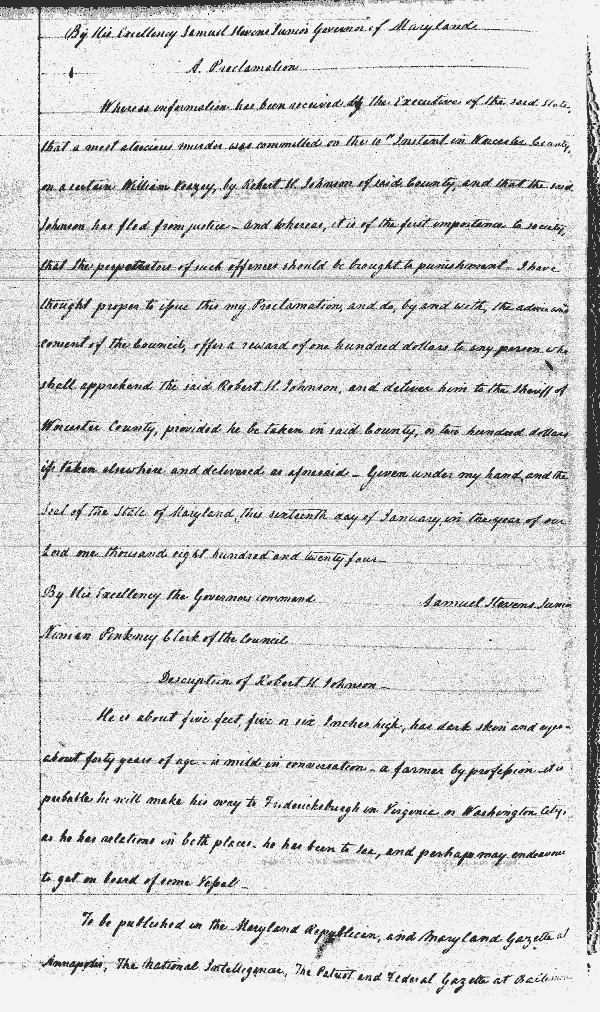 By His Excellency Samuel Stevens Junior Governor of Maryland
A Proclamation
Whereas information has been received by the Executive of the said State,
that a most atrocious murder was committed on the 10th Instant in Worcester County,
on a certain William Veazey, by Robert H. Johnson of said County, and that the said
Johnson has fled from justice - And whereas, it is of the first importance to society,
that the perpetrators of such offences should be brought to punishment. I have
thought proper to issue this my Proclamation, and do, by and with, the advice and
consent of the Council, offer a reward of one hundred dollars to any person who
shall apprehend the said Robert H Johnson, and deliver him to the Sheriff of
Worcester County, provided he be taken in said County, or two hundred dollars
if taken elsewhere and delivered as aforesaid - Given under my hand, and the
Seal of the State of Maryland, this sixteenth day of January, in the year of our
Lord one thousand eight hundred and twenty four -
By His Excellency the Governors command
Samuel Stevens Junior
Ninian Pinkney Clerk of the Council
Description of Robert H. Johnson -
He is about five feet five or six Inches high, has dark skin and eyes -
about forty years of age - is mild in conversation - a farmer by profession it is
probable he will make his way to Fredericksburgh in Virginia or Washington City,
as he has relations in both places. he has been to sea, and perhaps may endeavour
to get on board of some Vessel -
To be published in the Maryland Republican, and Maryland Gazette at
Annapolis, The National Intelligencer, The Patriot and Federal Gazette at Baltimore